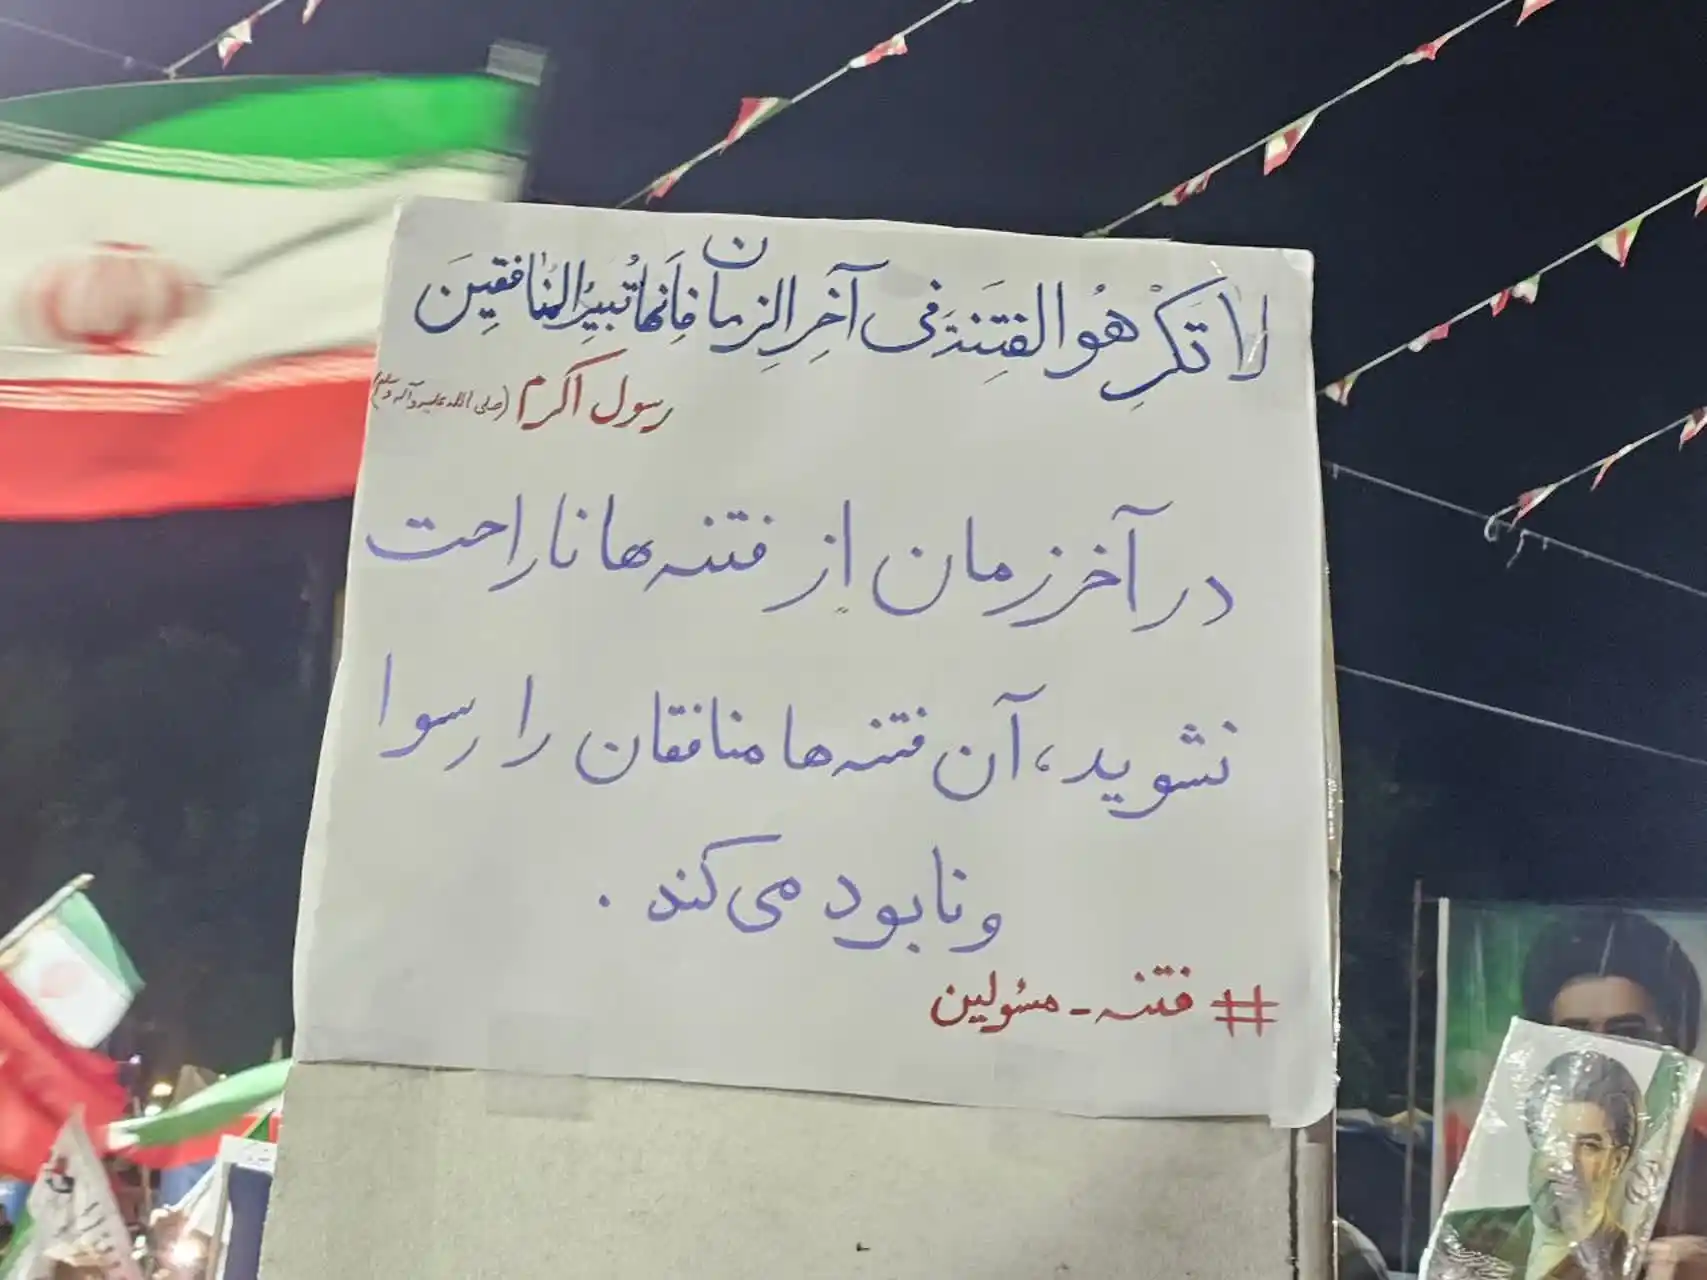 لا تَكْرِهُوا الفِتنَةَ فی آخِرِ الزِمانِ فَاِنها تُبیرُ المُنافقِینَ
رسول اکرم (صلی الله علیه وآله وسلم)
در آخرزمان از فتنه‌ها ناراحت
نشوید، آن فتنه‌ها منافقان را رسوا
و نابود می‌کند .
# فتنه - مسئولین